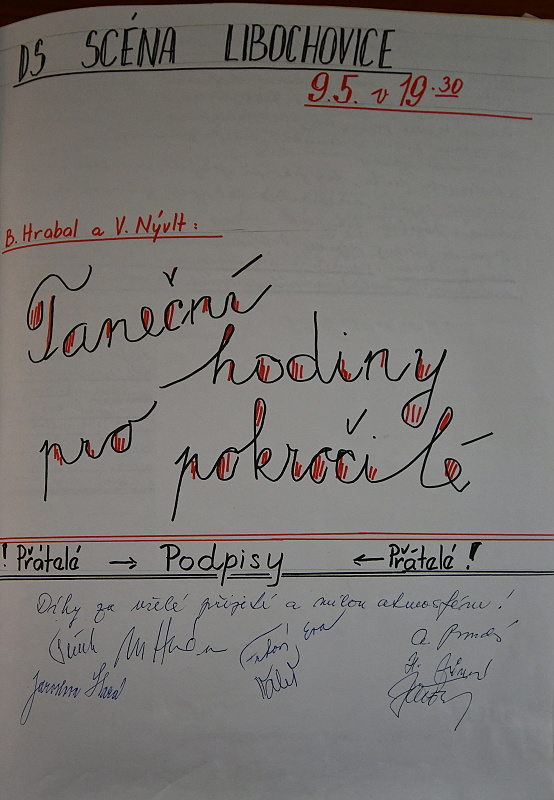 DS SCÉNA LIBOCHOVICE
9.5. v 19.30
B. Hrabal a V. Nývlt:
Taneční
hodiny
pro pokročilé
! Přátelé → Podpisy ← Přátelé !
Díky za vřelé přijetí a milou atmosféru!
Jaroslava